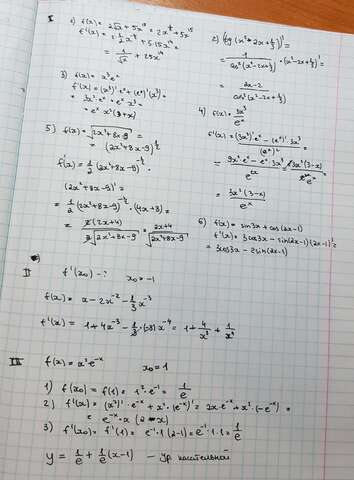 I
1) f(x) = 2√x + 5x¹⁵ = 2x^½ + 5x¹⁵
f'(x) = 2·½x^-½ + 5·15x¹⁴ =
= 1/√x + 75x¹⁴
2) (tg(x² - 2x + π/3))' =
= 1/cos²(x² - 2x + π/3) · (x² - 2x + π/3)' =
= (2x - 2)/cos²(x² - 2x + π/3)
3) f(x) = x³eˣ
f'(x) = (x³)'·eˣ + (eˣ)'(x³) =
= 3x²·eˣ + eˣ x³ =
= eˣ x²(3 + x)
4) f(x) = 3x³/eˣ
f'(x) = ((3x³)'·eˣ - (eˣ)'·3x³)/(eˣ)² =
= (9x²eˣ - eˣ·3x³)/e²ˣ = 3x²(3 - x)/eˣ
= 3x²(3 - x)/eˣ
5) f(x) = √(2x² + 8x - 9) =
= (2x² + 8x - 9)^½
f'(x) = ½(2x² + 8x - 9)^-½ ·
(2x² + 8x - 9)' =
= ½(2x² + 8x - 9)^-½ · (4x + 8) =
= 2(2x + 4)/2√(2x² + 8x - 9) = (2x + 4)/√(2x² + 8x - 9)
6) f(x) = sin3x + cos(2x - 1)
f'(x) = 3cos3x - sin(2x - 1)(2x - 1)' =
= 3cos3x - 2sin(2x - 1)
II
f'(x₀) - ? x₀ = -1
f(x) = x - 2x⁻² - ⅓x⁻³
f'(x) = 1 + 4x⁻³ - ⅓·(-3)x⁻⁴ = 1 + 4/x³ + 1/x⁴
III f(x) = x²e⁻ˣ x₀ = 1
1) f(x₀) = f(1) = 1²·e⁻¹ = 1/e
2) f'(x) = (x²)'·e⁻ˣ + x²·(e⁻ˣ)' = 2x·e⁻ˣ + x²·(-e⁻ˣ) =
= e⁻ˣ·x(2 - x)
3) f'(x₀) = f'(1) = e⁻¹·1(2 - 1) = e⁻¹·1·1 = 1/e
y = 1/e + 1/e(x - 1) — ур касательной